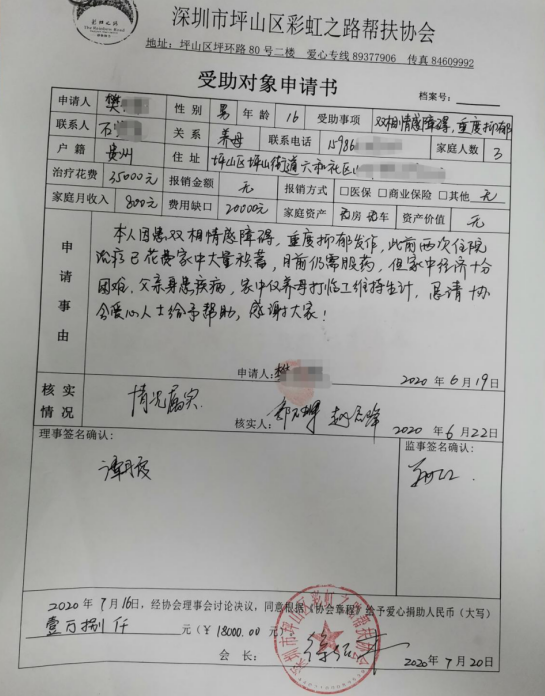 彩虹之路
The Rainbow Road
深圳市坪山区彩虹之路帮扶协会
地址:坪山区坪环路80号二楼 爱心专线89377906 传真84609992
受助对象申请书
档案号:
申请人 樊 性别 男 年龄 16 受助事项 双相情感障碍,重度抑郁
联系人 石 关系 养母 联系电话 15986 家庭人数 3
户籍 贵州 住址 坪山区坪山街道六和社区
治疗花费 35000元 报销金额 元 报销方式 □医保 □商业保险 □其他 无
家庭月收入 800元 费用缺口 20000元 家庭资产 房 车 资产价值 元
申请事由
本人因患双相情感障碍,重度抑郁发作,此前两次住院
治疗已花费家中大量积蓄,目前仍需服药,但家中经济十分
困难,父亲身患疾病,家中仅养母打临工维持生计,恳请协
会爱心人士给予帮助,感谢大家!
申请人:樊
2020年6月19日
核实情况
情况属实
核实人:
2020年6月22日
理事签名确认:
监事签名确认:
谭霞
2020年7月16日,经协会理事会讨论决议,同意根据《协会章程》给予爱心捐助人民币(大写)
壹万捌仟 元(¥18000.00元)
会长:
2020年7月20日
深圳市坪山区彩虹之路帮扶协会